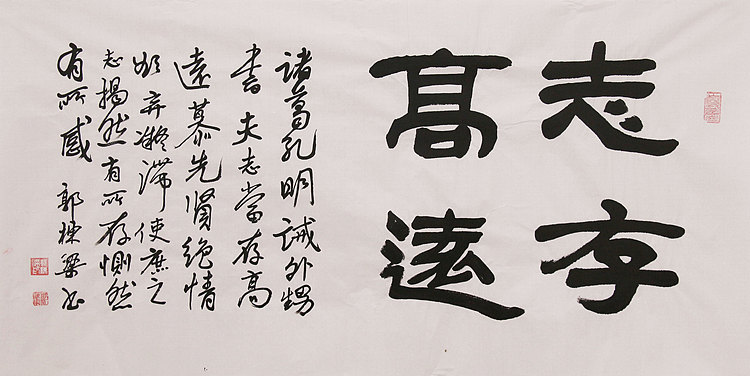 志存
髙遠
諸葛孔明誡外甥
書夫志當存高
遠慕先賢絕情
欲弃凝滯使庶之
志揭然有所存惻然
有所感 郭梁书